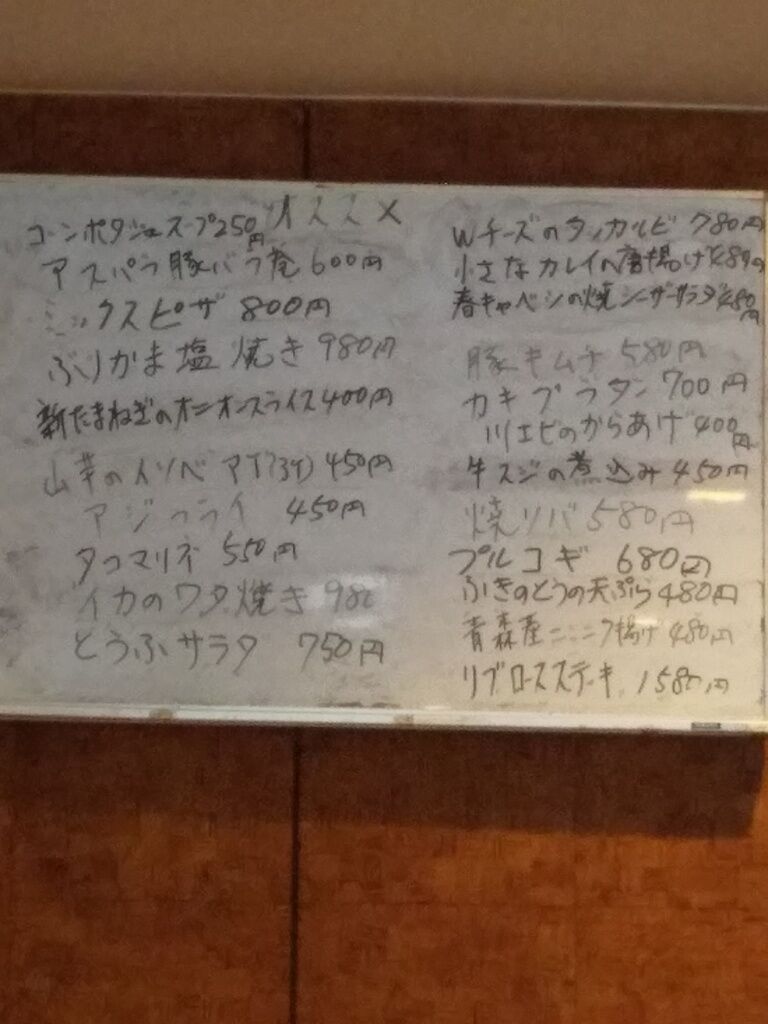 オススメ
コーンポタジュスープ250円
アスパラ豚バラ巻 600円
ミックスピザ 800円
ぶりかま塩焼き 980円
新たまねぎのオニオンスライス400円
山芋のイソベアゲ(3ケ) 450円
アジフライ 450円
タコマリネ 550円
イカのワタ焼き 980
とうふサラダ 750円
Wチーズのタッカルビ 780円
小さなカレイの唐揚げ 480円
春キャベツの焼シーザーサラダ 480円
豚キムチ 580円
カキグラタン 700円
川エビのからあげ 400円
牛スジの煮込み 450円
焼ソバ 580円
プルコギ 680円
ふきのとうの天ぷら 480円
青森産ニンニク揚げ 480円
リブロースステーキ 1580円